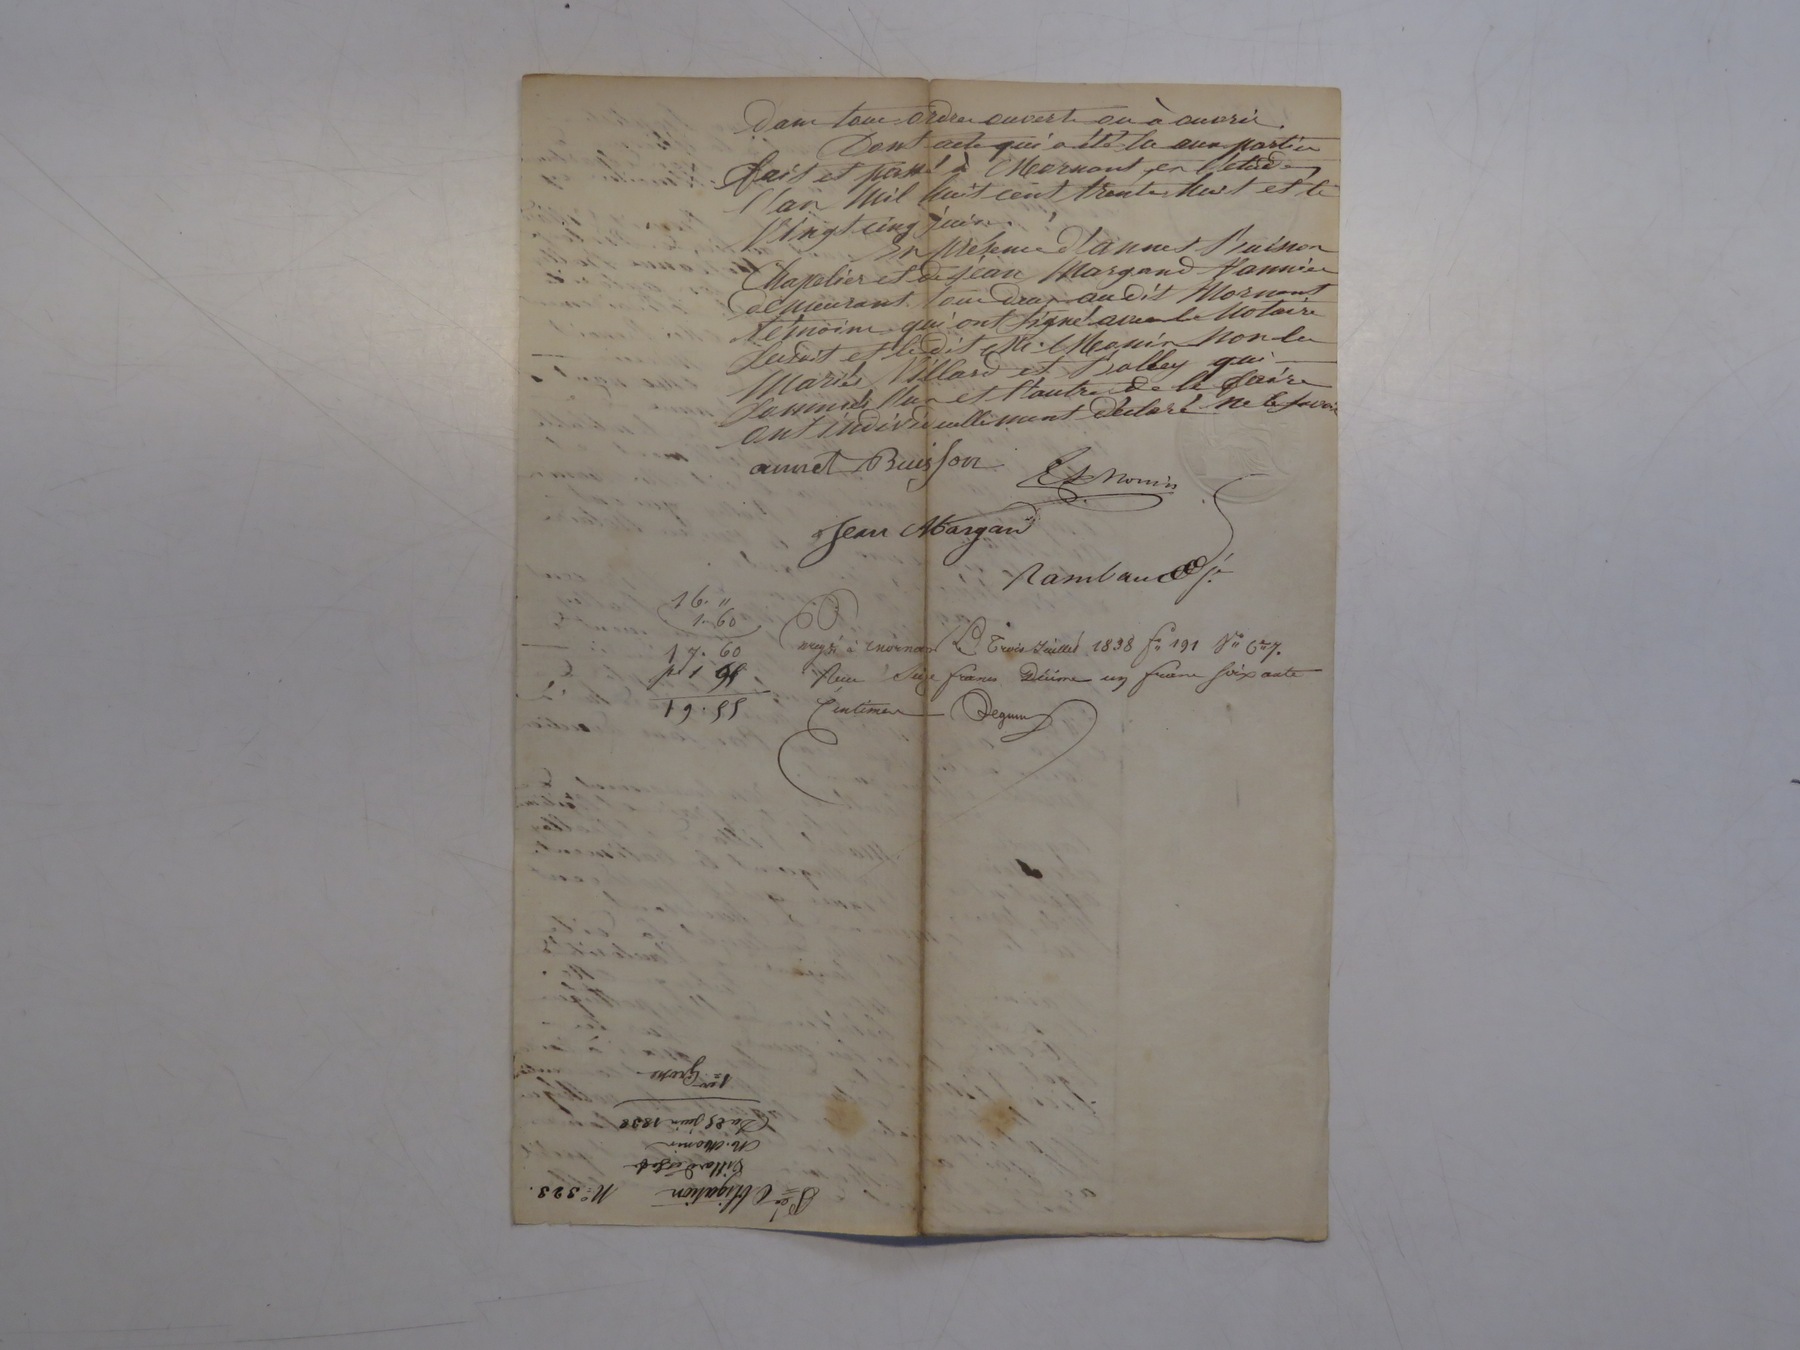 dans tous ordres ouverts ou à ouvrir.
Dont acte qui a été lu aux parties
fait et passé à Mornant en l'étude,
l'an mil huit cent trente huit et le
vingt cinq juin.
En présence d'annet Buisson
Chapelier et de Jean Margand Vannier
demeurant tous deux audit Mornant
témoins qui ont signé avec le Notaire
susdit et le dit Mr. Monin non les
Mariés Villard et qui
sommés l'un et l'autre de le faire
ont individuellement déclaré ne le savoir
annet Buisson
Monin
Jean Margand
Rambaud
16. "
1. 60
17. 60
1
19. 55
à Mornant Le Trois Juillet 1838 fo 191 Vo Con 7.
Reçu Seize francs Décime un franc soixante
Centimes Deguin
No. 323.
Obligation
Villard et
M. Monin
Du 25 juin 1838
1ere Grosse